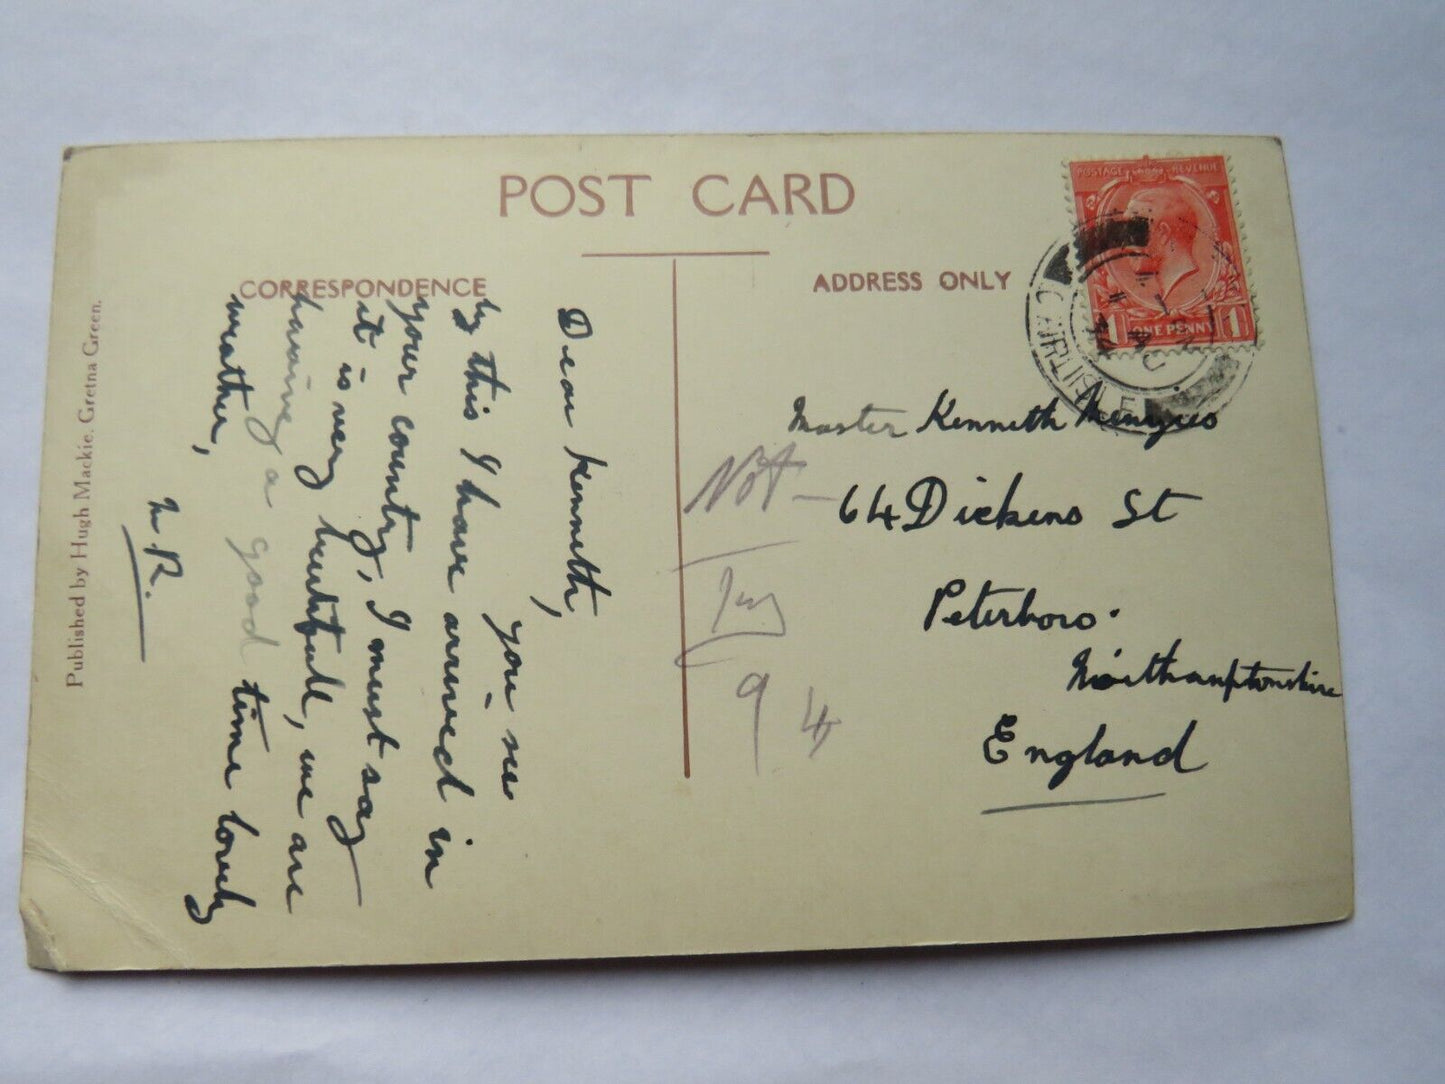 POST CARD
CORRESPONDENCE
ADDRESS ONLY
Dear Kenneth,
you see
by this I have arrived in
your country, I must say
it is very beutifull, we are
having a good time lovely
weather,
R.
Published by Hugh Mackie, Gretna Green.
POSTAGE REVENUE
1 ONE PENNY 1
CARLISLE
Master Kenneth Menzies
64 Dickens St
Peterboro.
Northamptonshire
England
Not
94